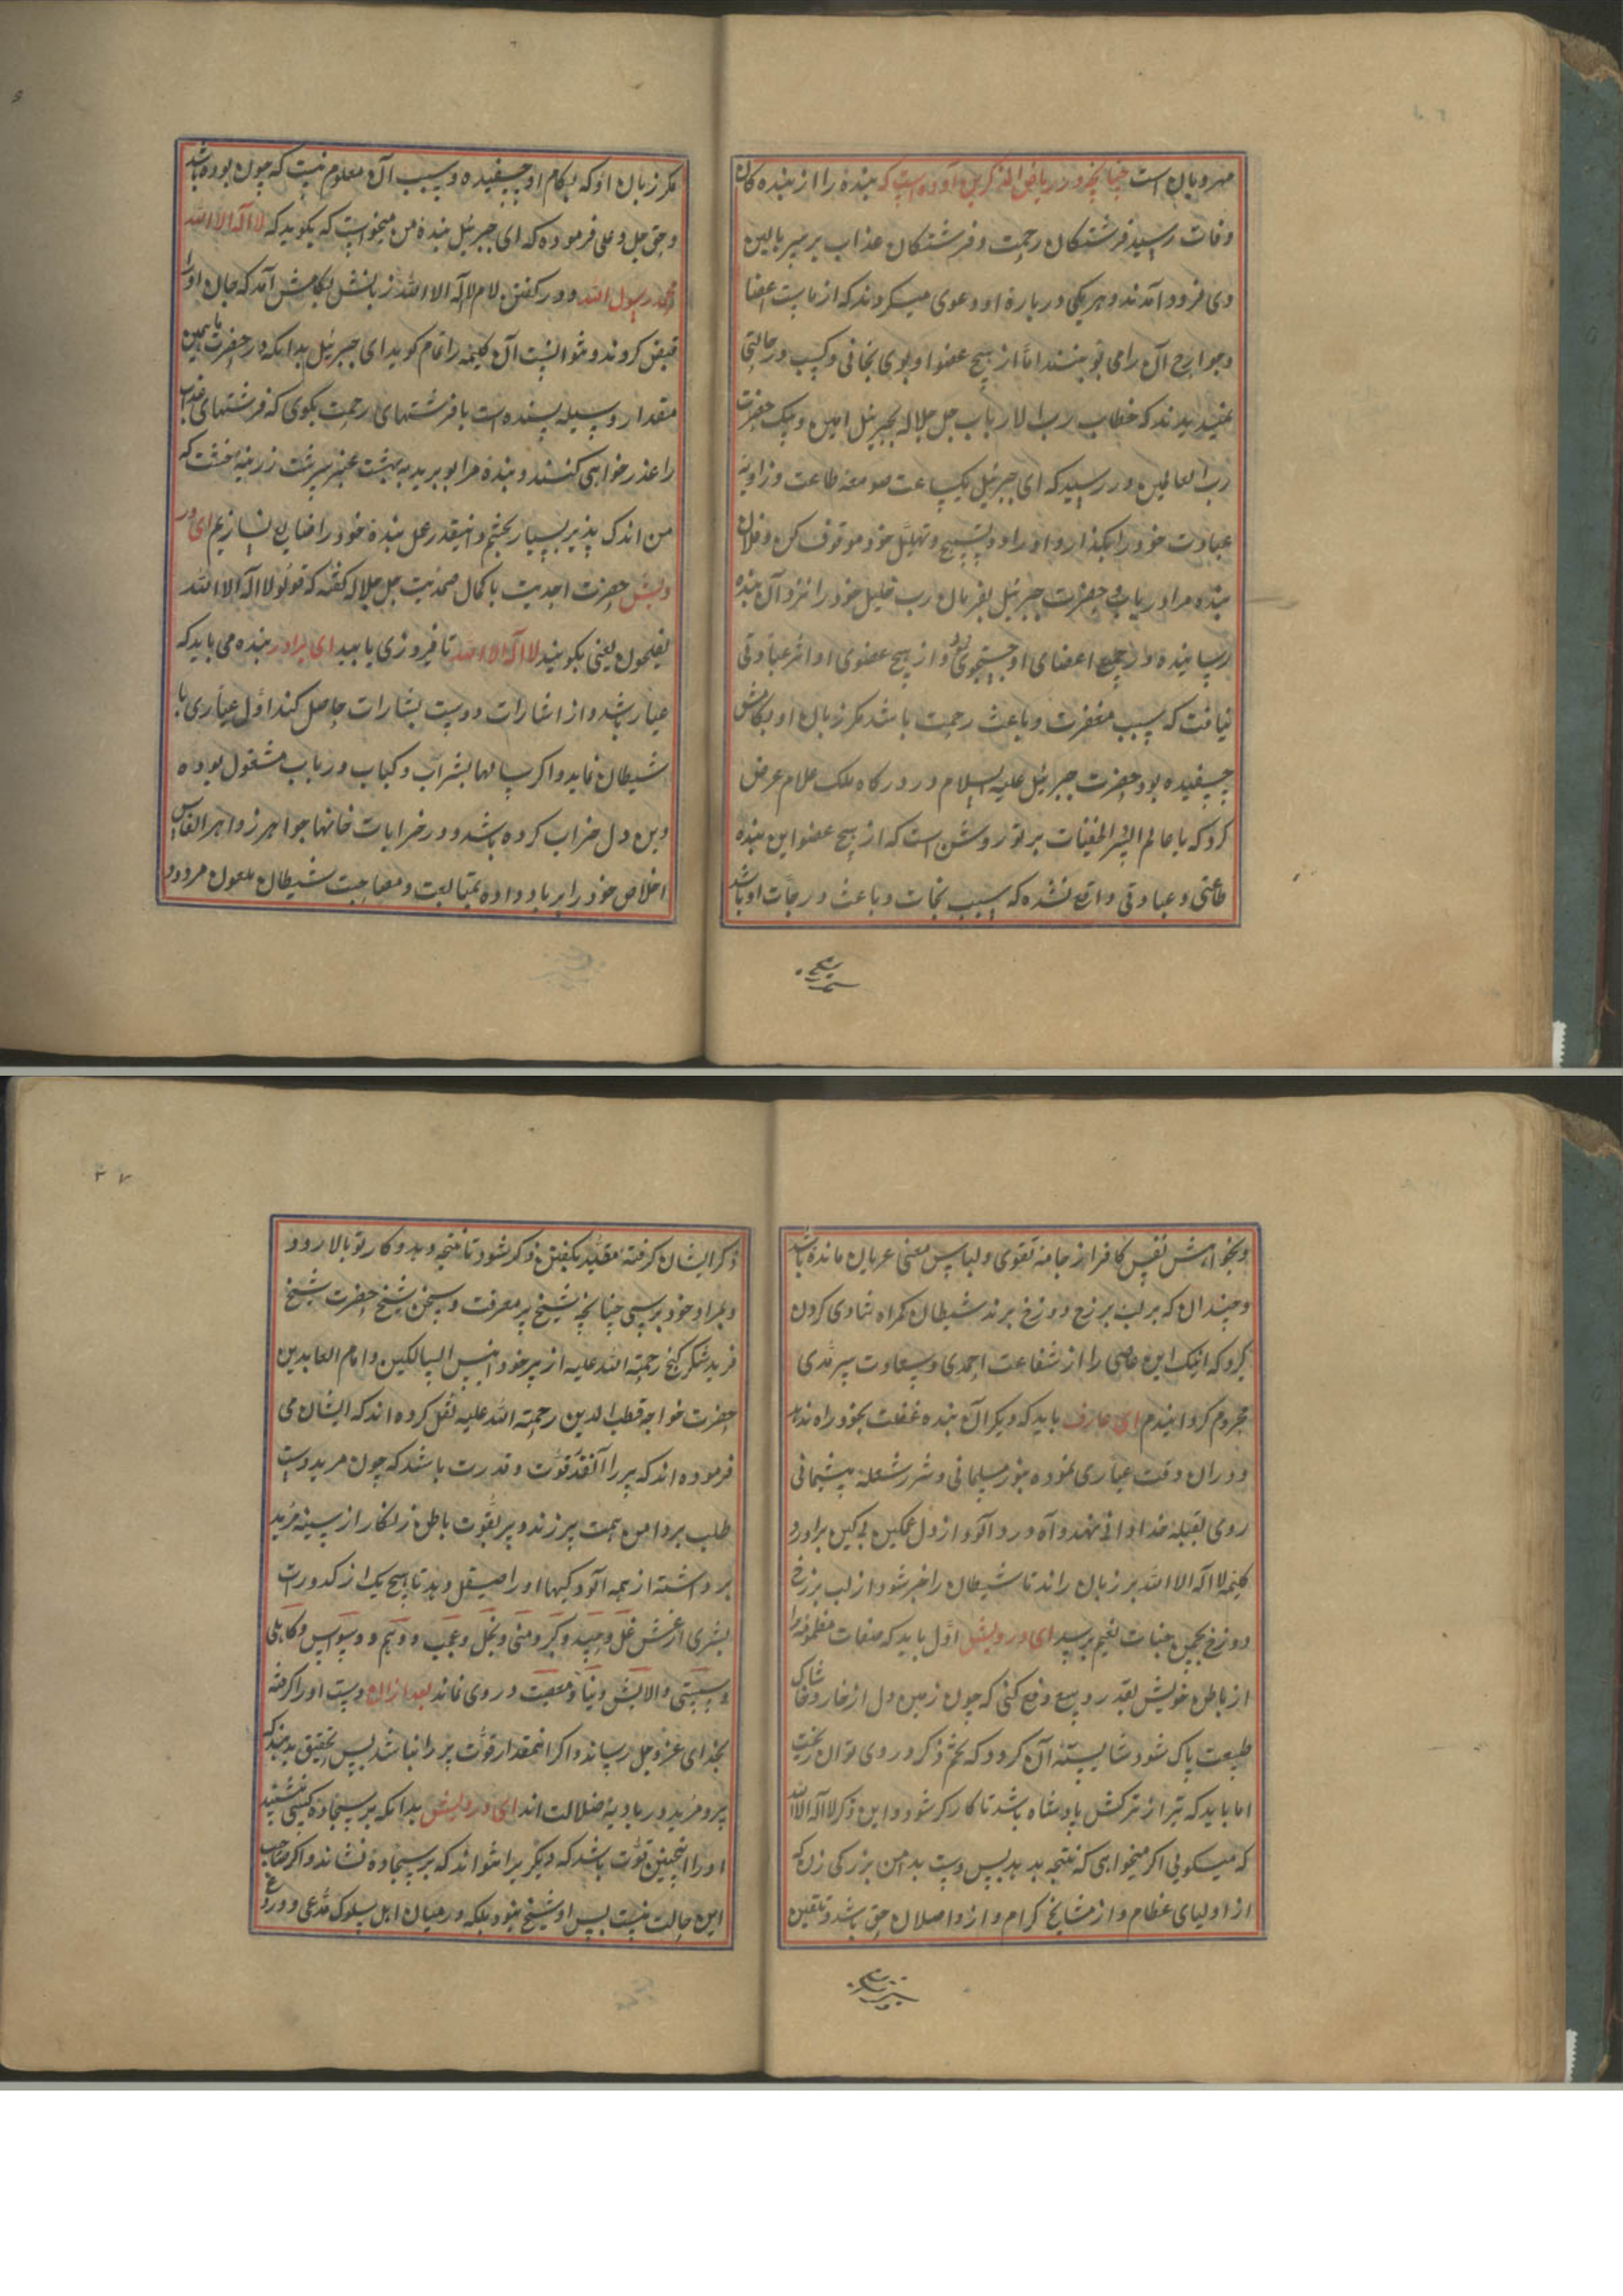 مهرویان است چنانچه در ریاض الذکرین آورده است که بنده را از بنده کان
وفات رسید فرشتکان رحمت و فرشتکان عذاب بر سر بالین
وی فرود آمدند و هر یکی در بارهٔ او دعوی میکردند که از ماست اعضا
و جوارح آن را می بوئیدند اما از هیچ عضو او بوی نجاتی و کسب درجاتی
نمیدیدند که خطاب رب الارباب جل جلاله بجبرئیل امین و پیک حضرت
رب العالمین در رسید که ای جبرئیل یکساعت صومعه طاعت و زاویه
عبادت خود را بکذار و اوراد و تسبیح و تهلیل خود موقوف کن و فلان
بنده مرا دریاب حضرت جبرئیل بفرمان رب خلیل خود را نزد آن بنده
رسانیده در جمیع اعضای او جستجوی نمود و از هیچ عضوی او اثر عبادتی
نیافت که سبب مغفرت و باعث رحمت باشد مکر زبان او بکامش
چسفیده بود حضرت جبرئیل علیه السلام در درکاه ملک علام عرض
کرد که یا عالم السر الخفیات بر تو روشن است که از هیچ عضو این بنده
طاعتی و عبادتی واقع نشده که سبب نجات و باعث درجات او باشد
مکر زبان او که بکام او چسفیده و سبب آن معلوم نیست که چون بوده باشد
و حق جل و علی فرموده که ای جبرئیل بندهٔ من میخواست که بکوید که لا اله الا الله
محمد رسول الله و در کفتن لام لا اله الا الله زبانش بکامش آمد که جان او را
قبض کردند و نتوانست آن کلیمه را تمام کوید ای جبرئیل بدانکه در حضرت ما همین
مقدار وسیله پسنده است با فرشتهای رحمت بکوی که فرشتهای عذاب
را عذر خواهی کنند و بندهٔ مرا بو برید به بهشت عنبر سرشت زرینه خشت که
من اندک پذیر بسیار بخشم و اینقدر عمل بندهٔ خود را ضایع نسازیم ای در
ویش حضرت احدیت با کمال صمدیت جل جلاله کفته که قولو لا اله الا الله
تفلحون یعنی بکوئید لا اله الا الله تا فیروزی یابید ای برادر بنده می باید که
عیار باشد و از اشارات دوست بشارات حاصل کند اول عیاری با
شیطان نماید و اکر سالها بشراب و کباب و رباب مشغول بوده
و بن دل خراب کرده باشد و در خرابات خانها جواهر زواهر انفاس
اخلاص خود را برباد داده بمتابعت و مصاحبت شیطان ملعون مردود
و بخواهش نفس کافر از جامه تقوی و لباس معنی عریان مانده باشد
و چندان که بر لب برزخ دوزخ برند شیطان کمراه شادی کردن
کرد که اینک این عاصی را از شفاعت احمدی و سعادت سرمدی
محروم کردانیدم ای عارف باید که دیکر آن بنده غفلت بخود راه ندهد
و دران وقت عیاری نموده بنور مسلمانی و شرر شعله پشیمانی
روی بقبله خدادانی نهند و آه درد آلود از دل غمکین بی کین براورد
کلیمه لا اله الا الله بر زبان راند تا شیطان را خبر شود از لب برزخ
دوزخ بچمن جنات نعیم برسید ای درویش اول باید که صفات مظلمونه را
از باطن خویش بقدر وسع دفع کنی که چون زمین دل از خار و خاشاک
طبیعت پاک شود شایستهٔ آن کردد که تخم ذکر در وی توان ریخت
اما باید که تیر از ترکش پادشاه باشد تا کارکر شود و این ذکر لا اله الا الله
که میکویی اکر میخواهی که نتیجه بدهد پس دست بدامن بزرکی زن که
از اولیای عظام و از مشایخ کرام و از واصلان حق باشد و تلقین
ذکر ایشان کرفته مقید بکفتن ذکر شود تا نتیجه دهد و کار تو بالا رود
و بمراد خود برسی چنانچه شیخ پر معرفت و سخن شیخ حضرت شیخ
فرید شکر کنج رحمة الله علیه از پیر خود انیس السالکین و امام العابدین
حضرت خواجه قطب الدین رحمة الله علیه نقل کرده اند که ایشان می
فرموده اند که پیر را آنقدر قوت و قدرت باشد که چون مرید دست
طلب بر دامن همت پیر زند و پیر بقوت باطن زنکار از سینه مرید
برداشته از همه آلودکیها او را صیقل دهد تا هیچ یک از کدورات
بشری از غش غل و حسد و کبر و منی و بخل و عجب و وهم و وسواس و کاهلی
و سستی و آلایش دنیا و معصیت در وی نماند بعد ازان دست او را کرفته
بخدای عز و جل رساند و اکر اینمقدار قوت پیر را نباشد پس تحقیق بدانند که
پیر و مرید در بادیهٔ ضلالت اند ای درویش بدانکه بر سجاده کسی نشیند
او را اینچنین قوت باشد که دیکر یرا تواند که بر سجاده نشاند و اکر صاحب
این حالت نیست پس او شیخ نبود بلکه در میان اهل سلوک مدعی و دروغ